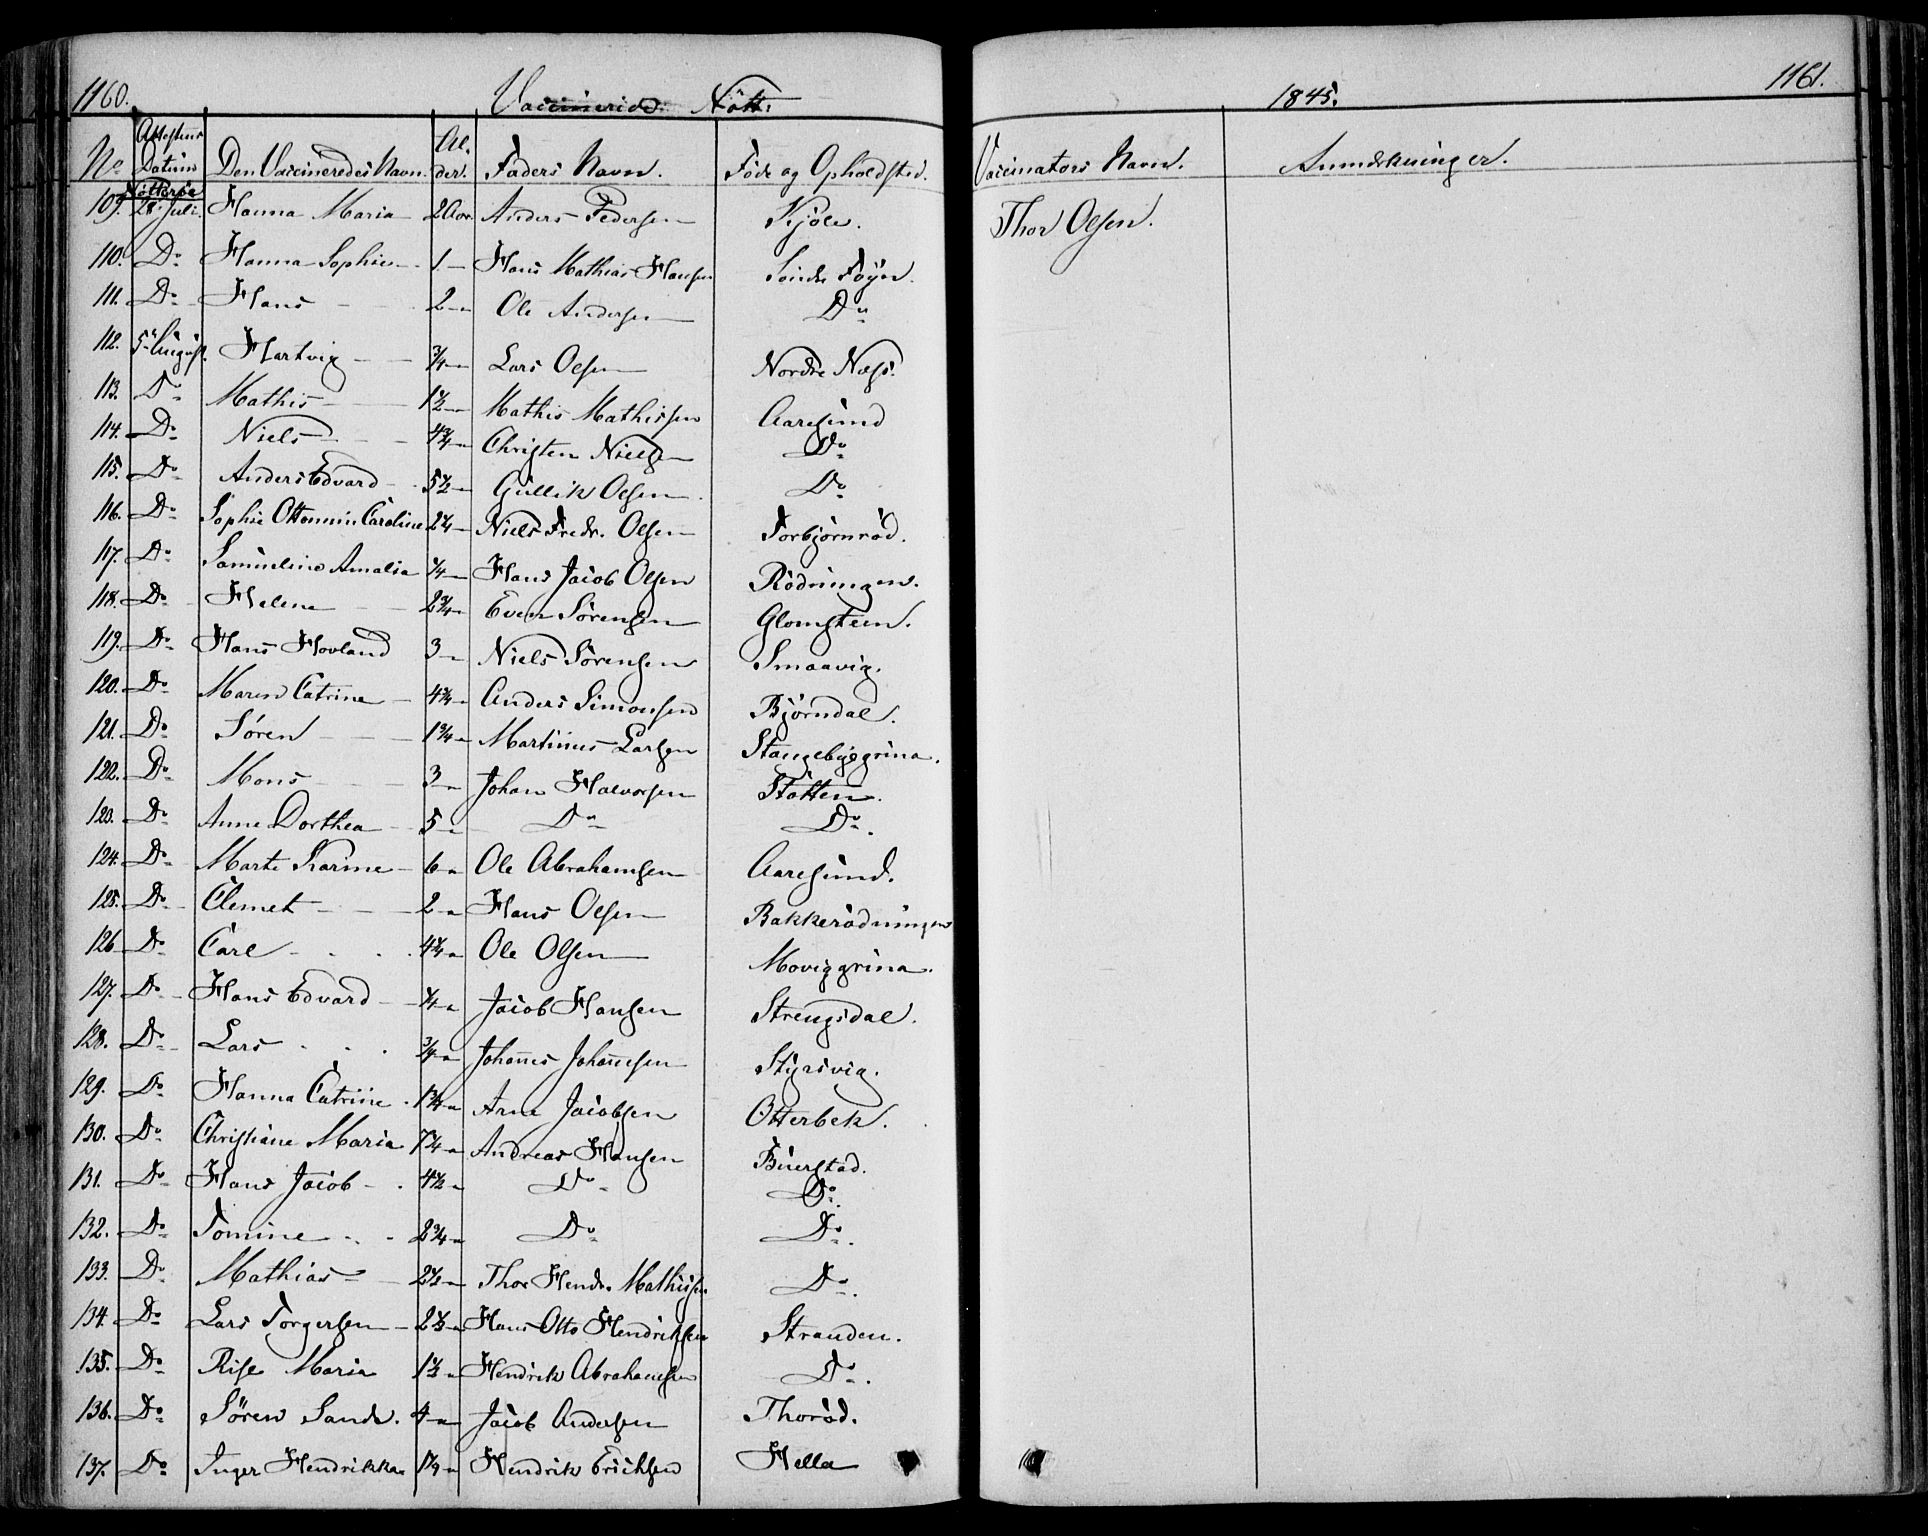 1160. Vaccinerede Nött.
No Attestens Datum Den Vaccineredes Navn. Alder. Faders Navn. Föde og Opholdsted.
Nötteröe
109. 28 Juli Hanna Maria 2 Aar Anders Pedersen Kjöle.
110. Do Hanna Sophie 1 Hans Mathias Hansen Söndre Föyn.
111. Do Hans 2 Ole Andersen Do
112. 5 August. Hartvig 3/4 Lars Olsen Nordre Næss.
113. Do Mathis 1 1/2 Mathis Mathissen Aaresund
114. Do Niels Christen Nielsen Do
115. Do Anders Edvard 5 1/2 Gullik Olsen Do
116. Do Sophie Ottomine Caroline 2 1/4 Niels Fredr. Olsen Torbjörnröd.
117. Do Samueline Amalia 1/4 Hans Jacob Olsen Rödningen.
118. Do Helene 2 3/4 Even Sörensen Glomstein.
119. Do Hans Hovland 3 Niels Sörensen Smaavig.
120. Do Maren Catrine 4 3/4 Anders Simonsen Björndal.
121. Do Sören 1 3/4 Martinus Larsen Stangebyegrina.
122. Do Mons 3 Johan Halvorsen Stötten.
123. Do Anne Dorthea 5 Do Do.
124. Do Marte Karine 6 Ole Abrahamsen Aaresund.
125. Do Clemet 2 Hans Olsen Bakkerödningen
126 Do Carl 4 1/4 Ole Olsen Moviggrina.
127. Do Hans Edvard 1/4 Jacob Hansen Strengsdal.
128. Do Lars 3/4 Johannes Johannesen Styrsvig.
129. Do Hanna Catrine 1 3/4 Arne Jacobsen Otterbek.
130. Do Christiane Maria 7 1/4 Andreas Hansen Buerstad.
131. Do Hans Jacob 4 1/2 Do Do.
132. Do Tomine 2 3/4 Do Do.
133. Do Mathias 2 1/2 Thor Hendr. Mathissen Do.
134. Do Lars Torgersen 2 1/2 Hans Otto Hendriksen Stranden.
135. Do Rise Maria 1 1/2 Hendrik Abrahamsen Do.
136. Do Sören Sande. 4 Jacob Andersen Thoröd.
137. Do Inger Hendrikka Hendrik Erichsen Hella
1845. 1161.
Vaccinators Navn. Anmærkninger.
Thor Olsen.